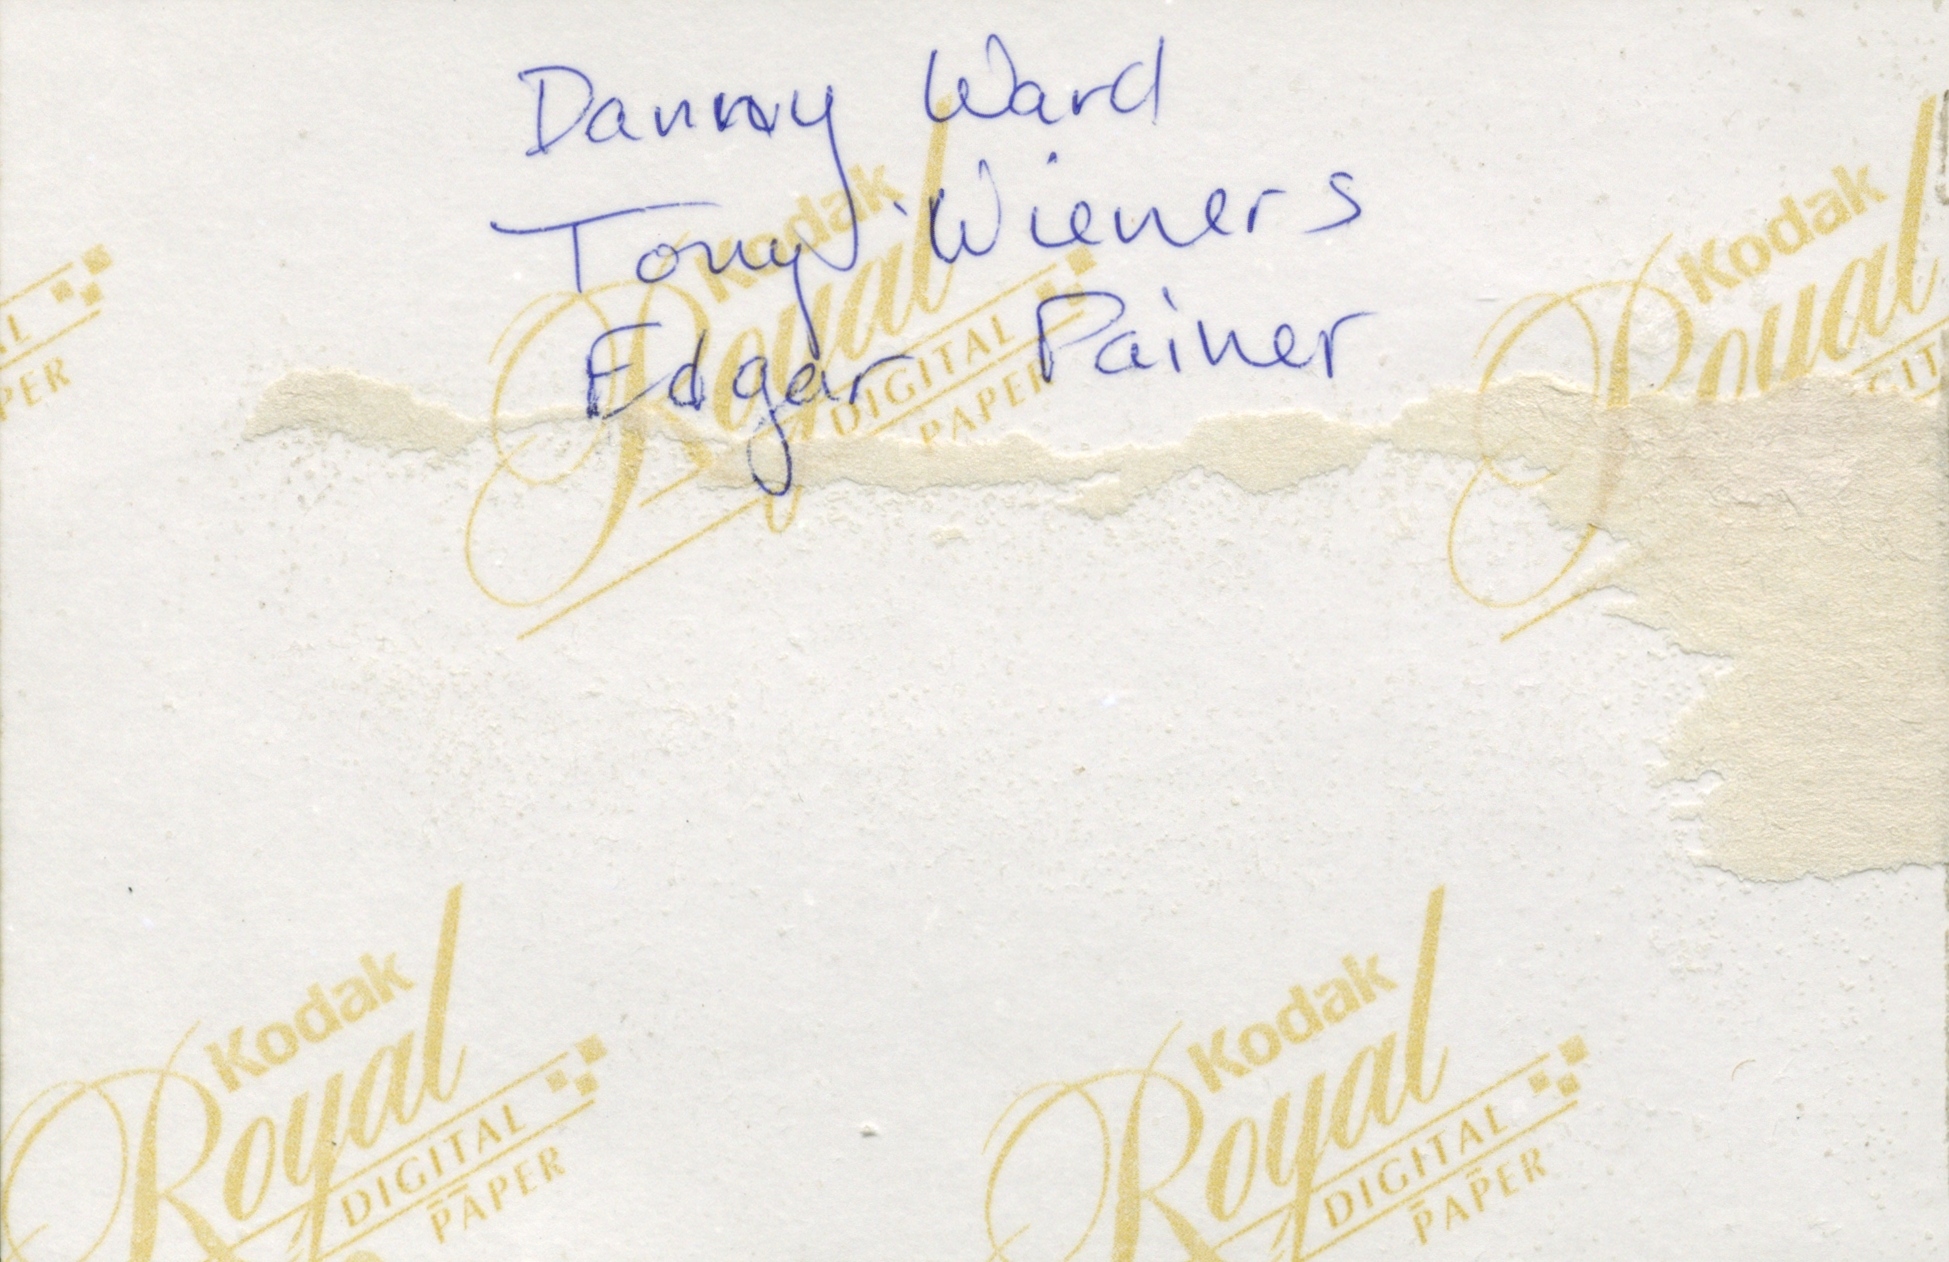 Danny Ward
Tony Wieners
Edgar Painer
Kodak
Royal
DIGITAL
PAPER
Kodak
Royal
PAPER
Kodak
Royal
DIGITAL
PAPER
Kodak
Royal
DIGITAL
PAPER